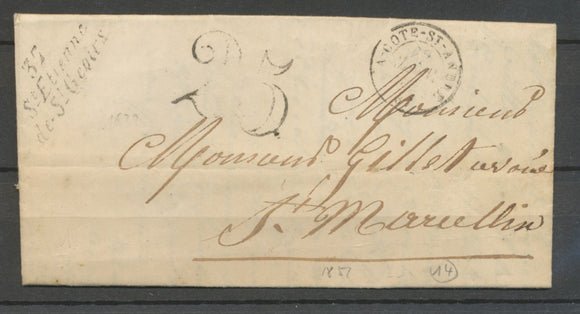 37
St-Etienne
de-St-Geoirs
25
LA-COTE-ST-ANDRÉ
Monsieur
Monsieur Gillet avoué
St. Marcellin
1851
14